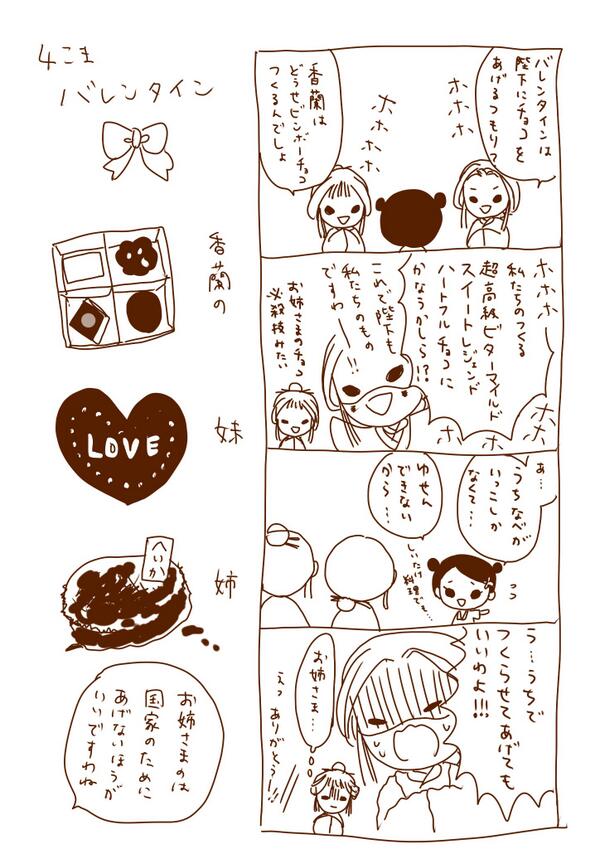 4こま
バレンタイン
バレンタインは
陛下にチョコを
あげるつもり?
ホホホ
ホホホホ
香蘭は
どうせビンボーチョコ
つくるんでしょ
ホホホ
私たちのつくる
超高級ビターマイルド
スイートレジェンド
ハートフルチョコに
かなうかしら!?
ホホホホ
これで陛下も
私たちのもの
ですわ!!
お姉さまのチョコ
必殺技みたい
あ…
うちなべが
いっこしか
なくて…
ゆせん
できない
から…
しいたけ
料理でも…
う…うちで
つくらせてあげても
いいわよ!!!
お姉さま…
えっ ありがとう!!
香蘭の
妹
LOVE
姉
へいか
お姉さまのは
国家のために
あげないほうが
いいですわね